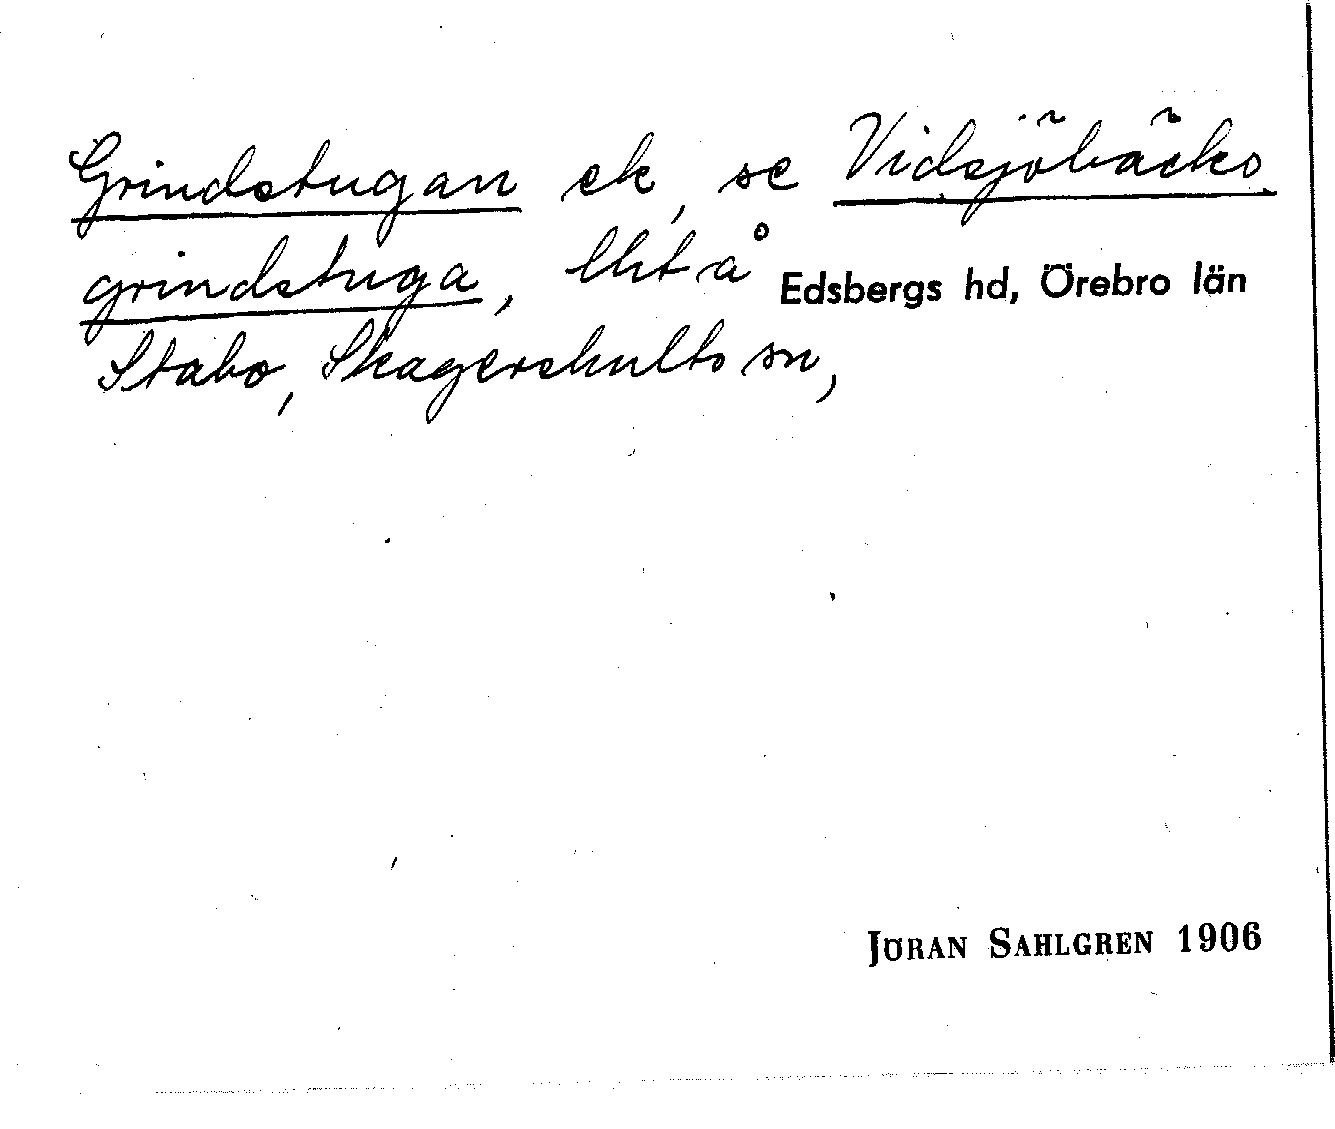 Grindstugan ek, se Vidsjöbäcks
grindstuga, lht å Edsbergs hd, Örebro län
Stabo, Skagershults sn,
JÖRAN SAHLGREN 1906